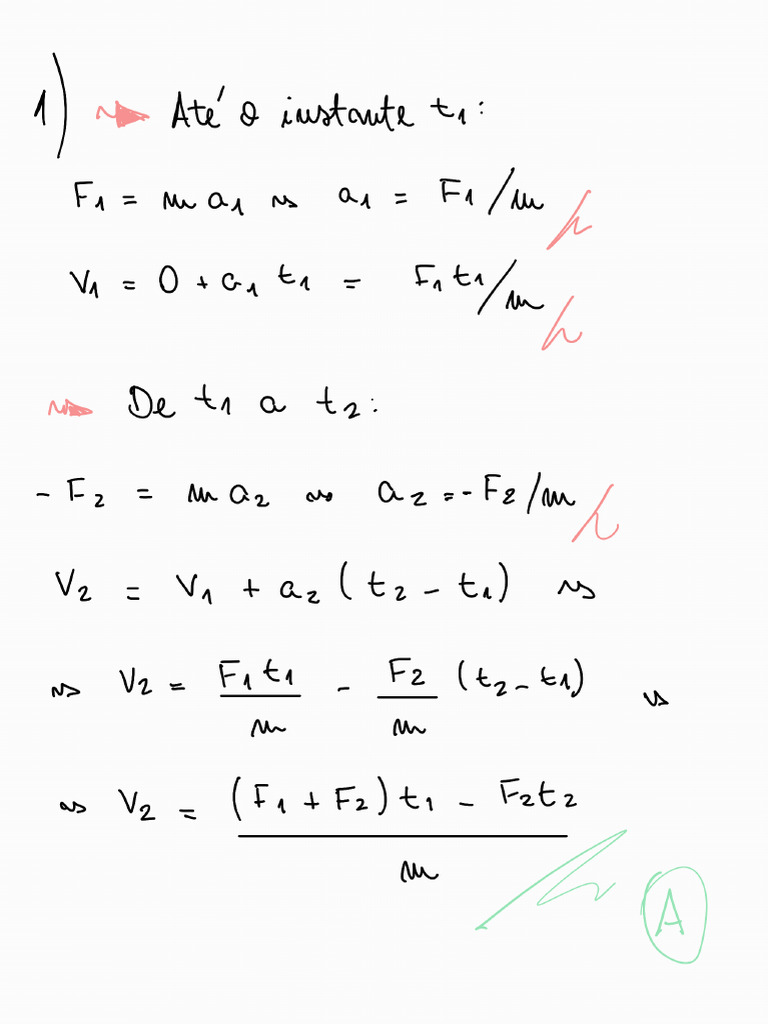 1) → Até o instante t₁:
F₁ = m a₁ ⇝ a₁ = F₁/m
V₁ = 0 + a₁ t₁ = F₁t₁/m
→ De t₁ a t₂:
- F₂ = m a₂ ⇝ a₂ = - F₂/m
V₂ = V₁ + a₂ (t₂ - t₁) ⇝
⇝ V₂ = F₁t₁/m - F₂/m (t₂ - t₁) ⇝
⇝ V₂ = ((F₁ + F₂)t₁ - F₂t₂)/m
A